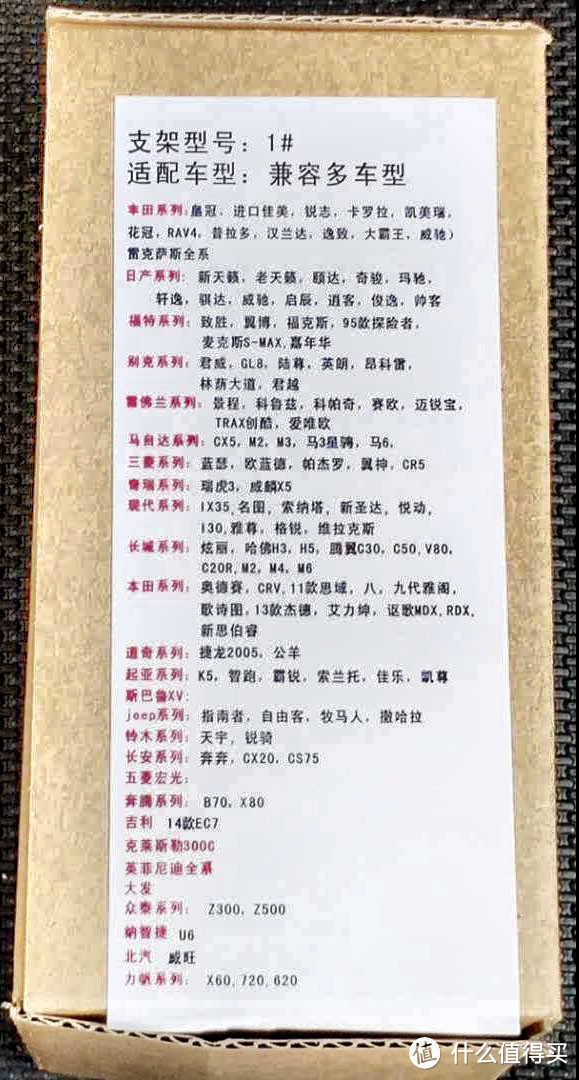 支架型号：1#
适配车型：兼容多车型
丰田系列：皇冠，进口佳美，锐志，卡罗拉，凯美瑞，
花冠，RAV4，普拉多，汉兰达，逸致，大霸王，威驰）
雷克萨斯全系
日产系列：新天籁，老天籁，颐达，奇骏，玛驰，
轩逸，骐达，威驰，启辰，逍客，俊逸，帅客
福特系列：致胜，翼博，福克斯，95款探险者，
麦克斯S-MAX,嘉年华
别克系列：君威，GL8，陆尊，英朗，昂科雷，
林荫大道，君越
雪佛兰系列：景程，科鲁兹，科帕奇，赛欧，迈锐宝，
TRAX创酷，爱唯欧
马自达系列：CX5，M2，M3，马3星骋，马6，
三菱系列：蓝瑟，欧蓝德，帕杰罗，翼神，CR5
奇瑞系列：瑞虎3，威麟X5
现代系列：IX35,名图，索纳塔，新圣达，悦动，
I30,雅尊，格锐，维拉克斯
长城系列：炫丽，哈佛H3，H5，腾翼C30，C50,V80，
C20R,M2，M4，M6
本田系列：奥德赛，CRV,11款思域，八，九代雅阁，
歌诗图，13款杰德，艾力绅，讴歌MDX,RDX，
新思伯睿
道奇系列：捷龙2005，公羊
起亚系列：K5，智跑，霸锐，索兰托，佳乐，凯尊
斯巴鲁XV：
jeep系列：指南者，自由客，牧马人，撒哈拉
铃木系列：天宇，锐骑
长安系列：奔奔，CX20，CS75
五菱宏光：
奔腾系列：B70，X80
吉利 14款EC7
克莱斯勒300C
英菲尼迪全系
大发
众泰系列：Z300，Z500
纳智捷 U6
北汽 威旺
力帆系列：X60,720,620
值 什么值得买